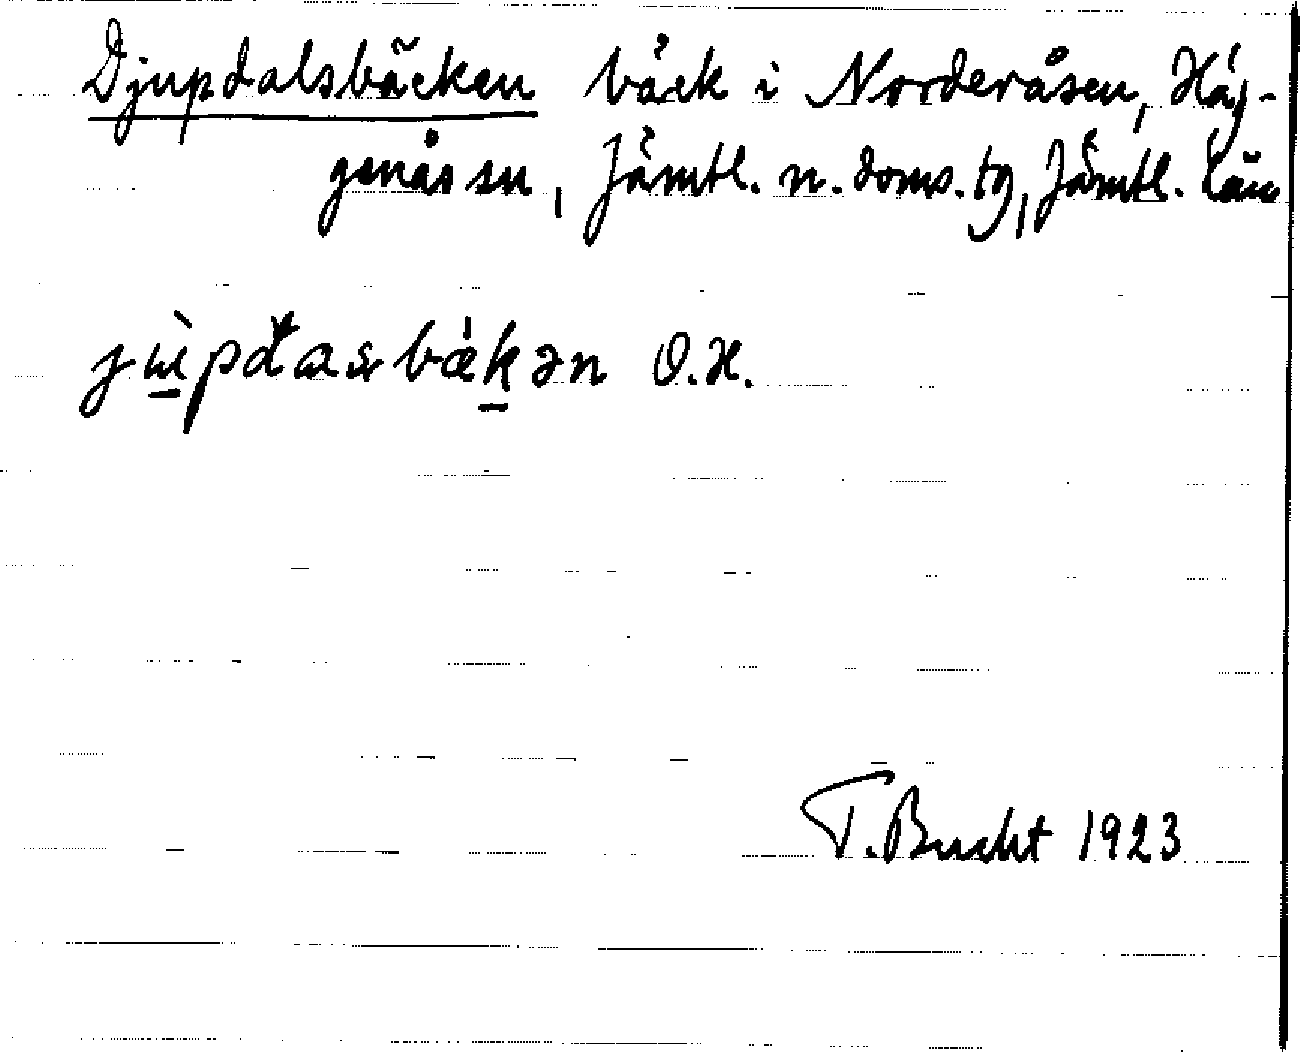 Djupdalsbäcken bäck i Norderåsen, Häg-
genåsen, Jämtl. n. doms. tg, Jämtl. län
O.H.
T. Bucht 1923